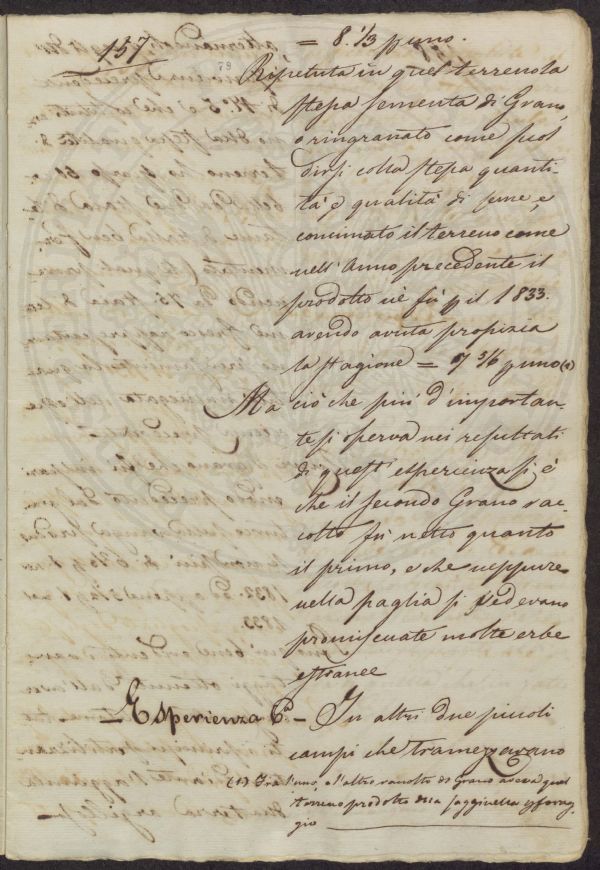 157
79
= 8. 1/3 p uno.
Ripetuta in quel terreno la
stepa sementa di Grano,
o ringranato come suol
dirsi colla stepa quanti-
tà e qualità di seme e,
concimato il terreno come
nell'Anno precedente il
prodotto ne fù p il 1833.
avendo avuta propizia
la stagione = 7 3/4 p uno (1)
Ma ciò che più d'importan-
te si osserva nei resultati
di quest'esperienza si è
che il secondo Grano rac-
colto fù netto quanto
il primo, e che neppure
nella paglia si vedevano
promiscuate molte erbe
estranee
— Esperienza 6.a — In altri due piccoli
campi che tramezzavano
(1) Tra l'uno, e l'altro raccolto di Grano aveva quel
terreno prodotto della sagginella p forag-
gio